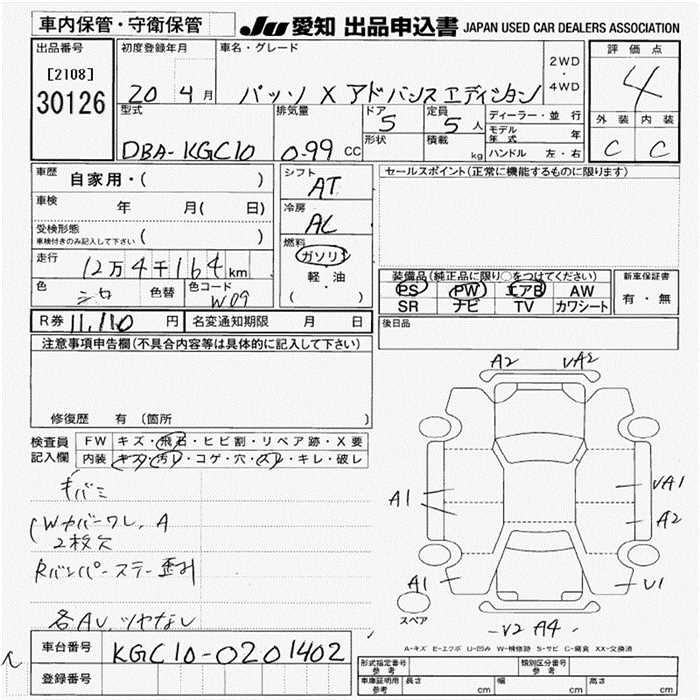 車内保管・守衛保管
JU 愛知 出品申込書 JAPAN USED CAR DEALERS ASSOCIATION
出品番号
[2108]
30126
初度登録年月
20 4月
車名・グレード
パッソ X アドバンスエディション
2WD
・
4WD
評価点
4
外装 内装
C C
型式
DBA-KGC10
排気量
0.99 CC
ドア
5
形状
定員
5人
積載
kg
ディーラー・並行
モデル年式 年
ハンドル 左・右
車歴 自家用・( )
車検 年 月( 日)
受検形態
車検付きのみ記入して下さい ( )
走行
12万4千164km
色 シロ 色替 色コード W09
シフト
AT
冷房
AC
燃料
ガソリン
軽・油
( )
セールスポイント(正常に機能するものに限ります)
装備品(純正品に限り○をつけてください)
PS PW エアB AW
SR ナビ TV カワシート
新車保証書
有・無
R券 11,110円 名変通知期限 月 日
後日品
注意事項申告欄(不具合内容等は具体的に記入して下さい)
修復歴 有 (箇所 )
検査員記入欄
FW キズ・飛石・ヒビ割・リペア跡・X要
内装 キズ・汚レ・コゲ・穴・スレ・キレ・破レ
キバミ
(Wカバーワレ、A
2枚欠
Rバンパーステー歪み
各AU、ツヤなし
A2 UA2
A1 UA1
A2
A1 U1
スペア
U2 A4
A-キズ E-エクボ U-凹み W-補修跡 S-サビ C-腐食 XX-交換済
車台番号 KGC10-0201402
登録番号
形式指定番号 参考
類別区分番号 参考
車庫証明用 参考 長さ cm 幅 cm 高さ cm